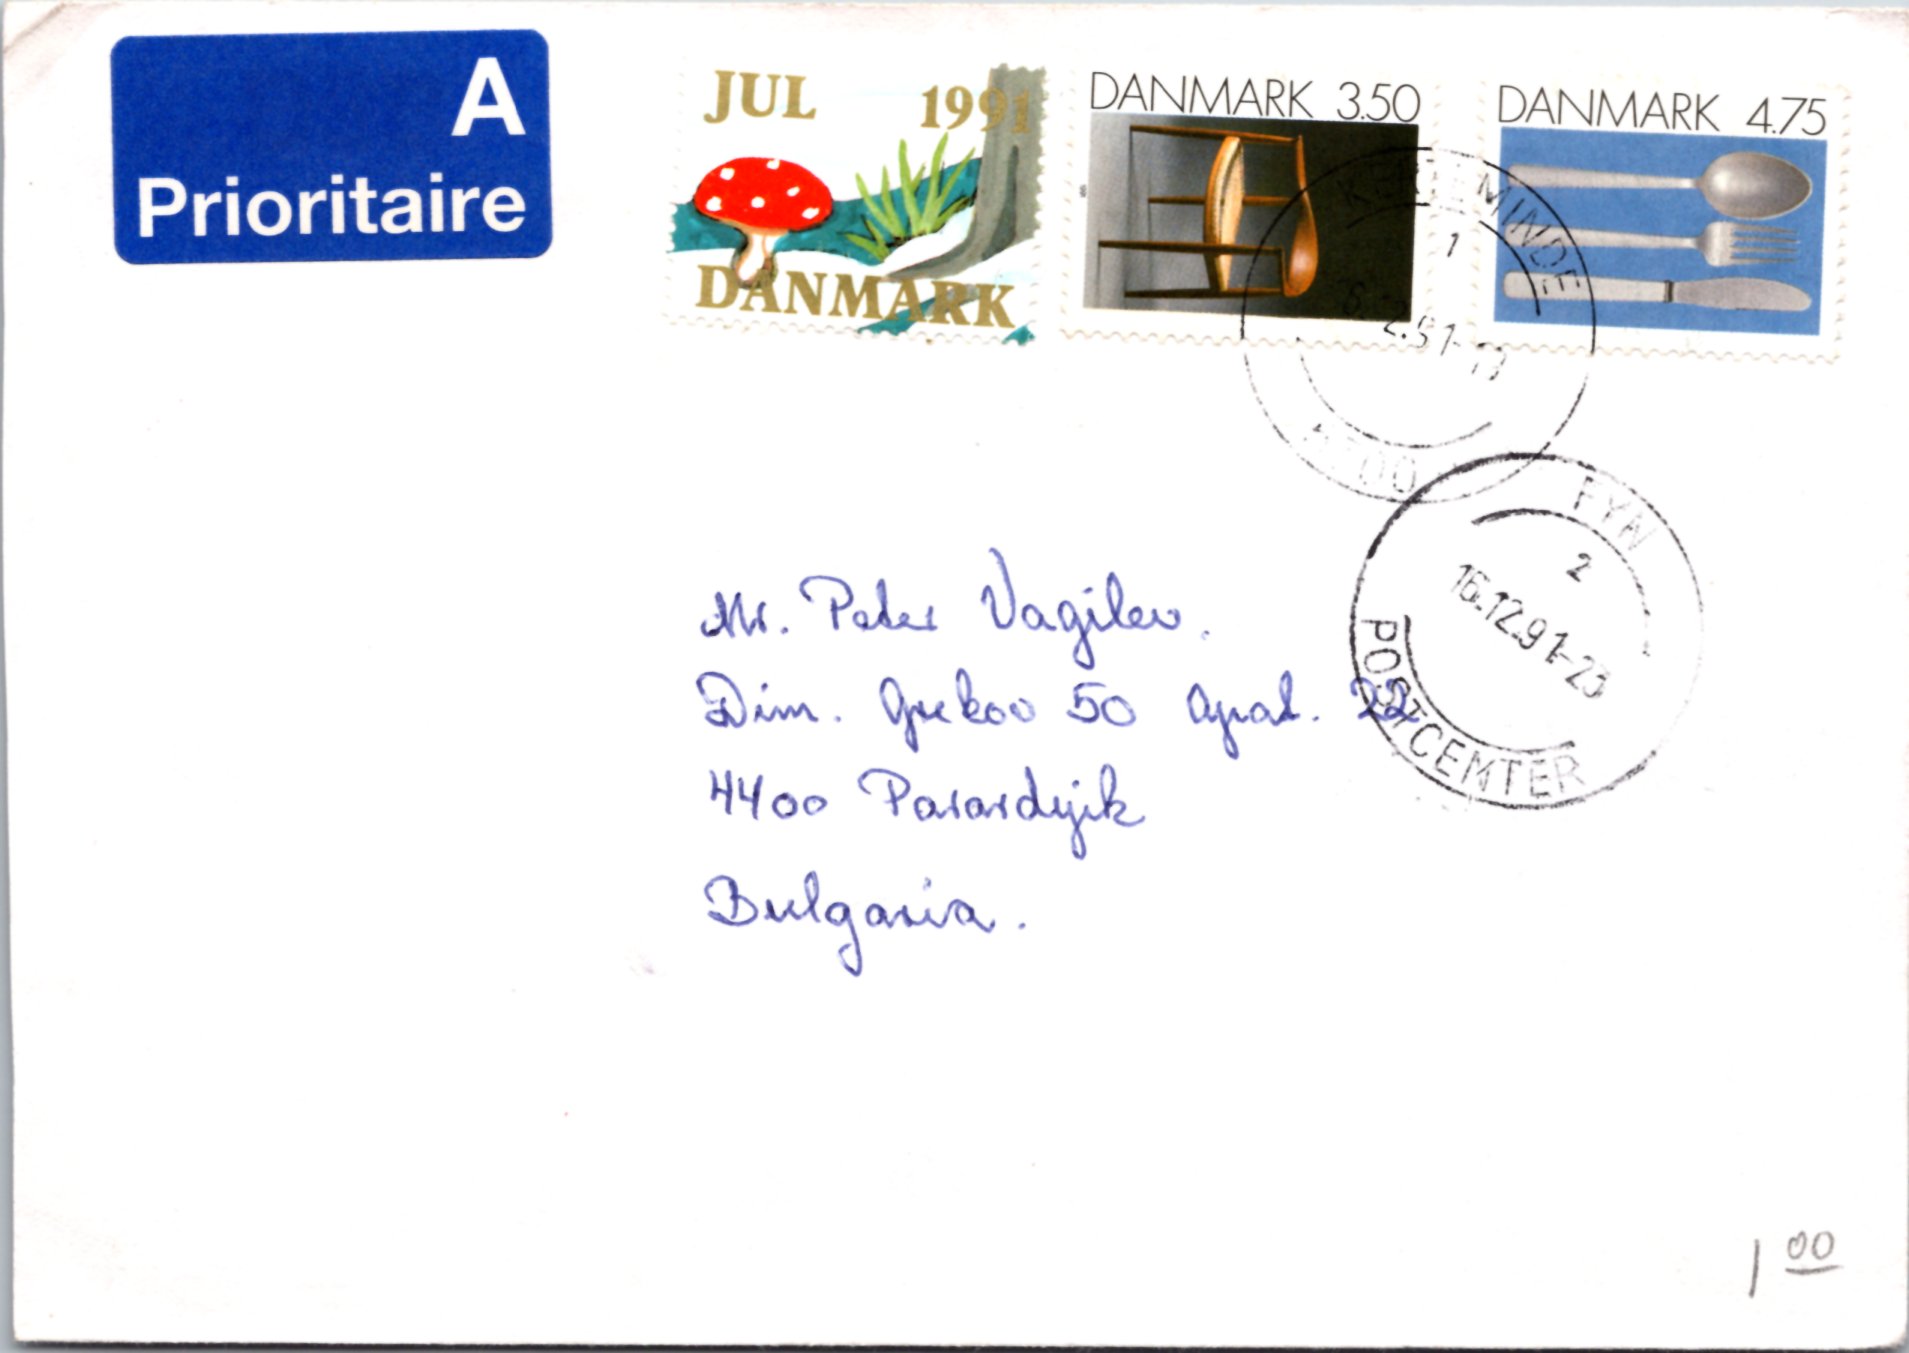 A
Prioritaire
JUL 1991
DANMARK
DANMARK 3.50
DANMARK 4.75
KERTEMINDE
1
FYN
2
16.12.91-23
POSTCENTER
Mr. Peter Vagilev.
Dim. Grekov 50 Apat. 22
4400 Parardyik
Bulgaria.
1 00